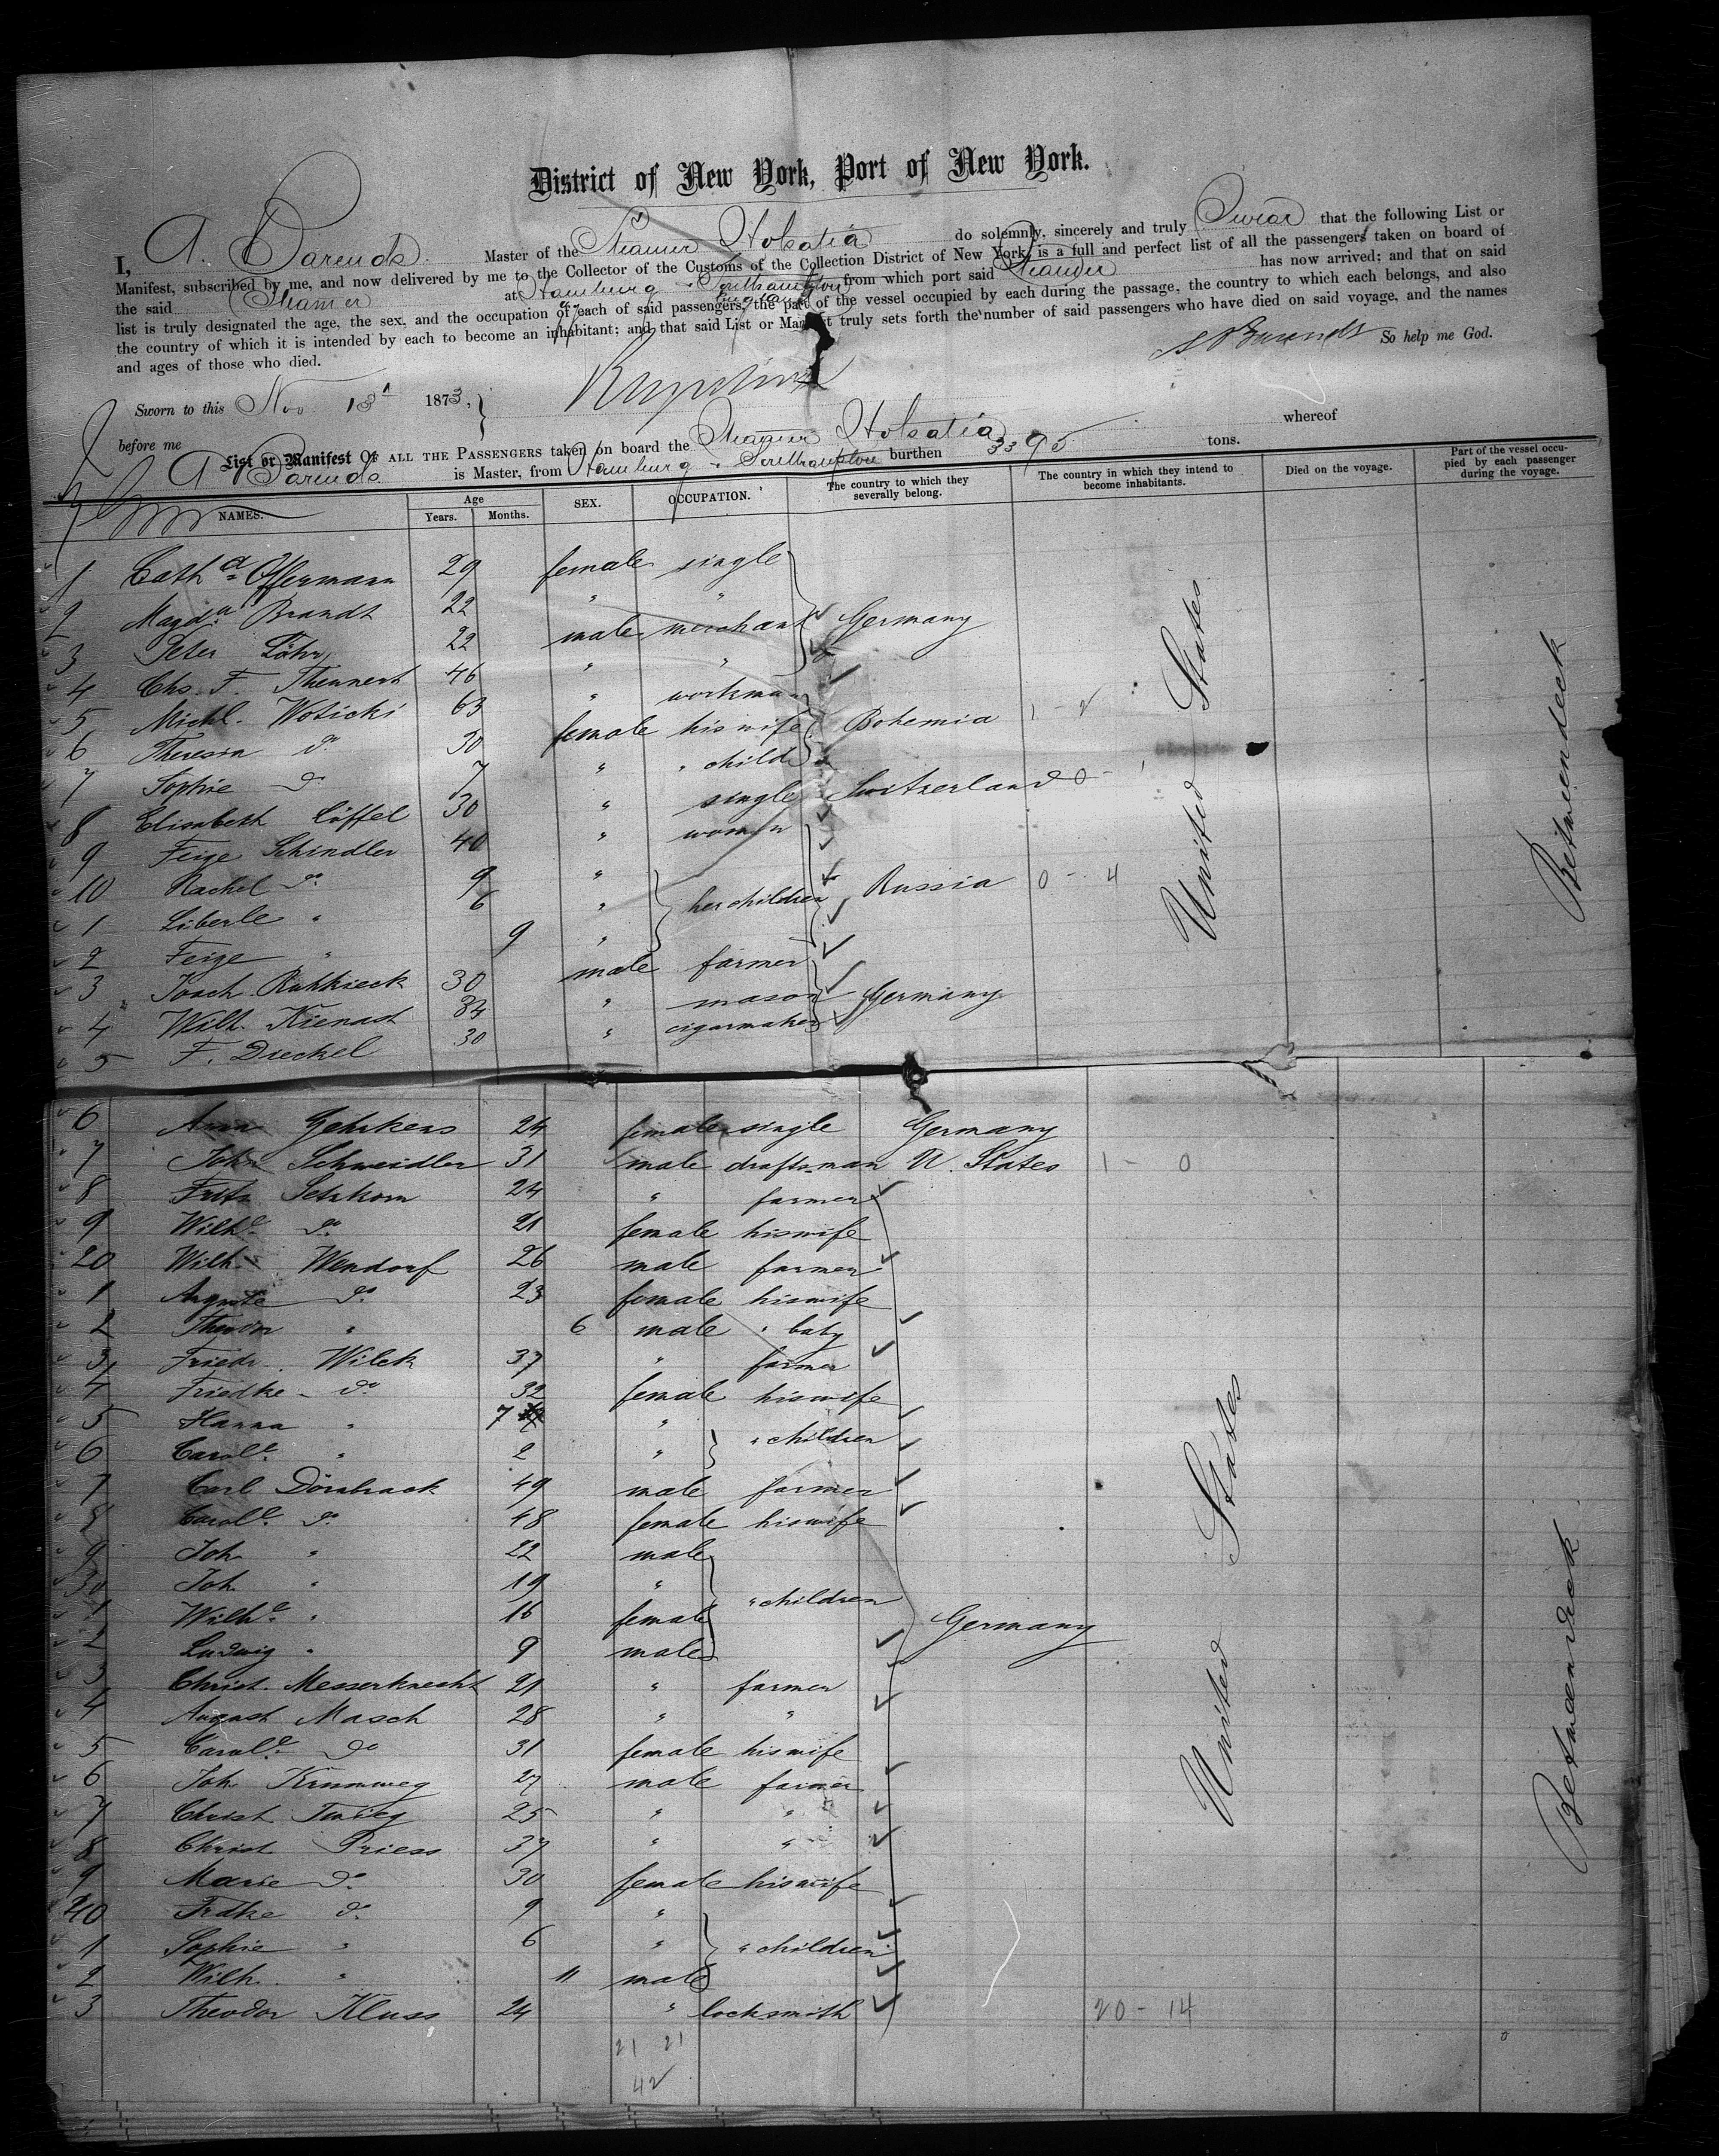 District of New York, Port of New York.
I, A. Barends Master of the Steamer Holsatia do solemnly, sincerely and truly Swear that the following List or
Manifest, subscribed by me, and now delivered by me to the Collector of the Customs of the Collection District of New York, is a full and perfect list of all the passengers taken on board of
the said Steamer at Hamburg & Southampton from which port said Steamer has now arrived; and that on said
list is truly designated the age, the sex, and the occupation of each of said passengers, the part of the vessel occupied by each during the passage, the country to which each belongs, and also
the country of which it is intended by each to become an inhabitant; and that said List or Manifest truly sets forth the number of said passengers who have died on said voyage, and the names
and ages of those who died. So help me God.
Sworn to this Nov. 13 1873,
before me
List or Manifest OF ALL THE PASSENGERS taken on board the Steamer Holsatia whereof
A Barends is Master, from Hamburg & Southampton burthen 3395 tons.
NAMES. Age Years. Months. SEX. OCCUPATION. The country to which they severally belong. The country in which they intend to become inhabitants. Died on the voyage. Part of the vessel occupied by each passenger during the voyage.
1 Cath.a Offermann 29 female single
2 Magd.a Brandt 22 " "
3 Peter Löhr 22 male merchant Germany
4 Chs. F. Theunert 46 " "
5 Michl. Woticki 63 " workman
6 Theresia do 30 female his wife Bohemia 1 - 2
7 Sophie do 7 " " child
8 Elisabeth Löffel 30 " single Switzerland 0 - 1
9 Feige Schindler 40 " woman
10 Rachel do 9 "
1 Liberle " 6 " her children Russia 0 - 4
2 Feige " 9 "
3 Joach. Ruhkieck 30 male farmer
4 Wilh. Kienast 34 " mason Germany
5 F. Dieckel 30 " cigarmaker
United States
Betweendeck
6 Anna Gehrkens 24 female single Germany
7 John Schweidler 31 male draftsman U. States 1 - 0
8 Fritz Setzkorn 24 " farmer
9 Wilh.e do 21 female his wife
20 Wilh. Wendorf 26 male farmer
1 Auguste do 23 female his wife
2 Theodor " 6 male " baby
3 Friedr. Wilck 37 " farmer
4 Friedke do 32 female his wife
5 Hanna " 7 "
6 Carol.e " 2 " " children
7 Carl Dörnbrack 49 male farmer
8 Carol.e do 48 female his wife
9 Joh. " 22 male
30 Joh. " 19 "
1 Wilh.e " 16 female " children Germany
2 Ludwig " 9 male
3 Christ. Messerknecht 21 " farmer
4 August Masch 28 " "
5 Carol.e do 31 female his wife
6 Joh. Krumweg 27 male farmer
7 Christ Twieg 25 " "
8 Christ Priess 37 " "
9 Marie do 30 female his wife
40 Frdke do 9 "
1 Sophie " 6 " " children
2 Wilh. " 11 male
3 Theodor Kluss 24 " locksmith 20 - 14
United States
Betweendeck
21 21
42